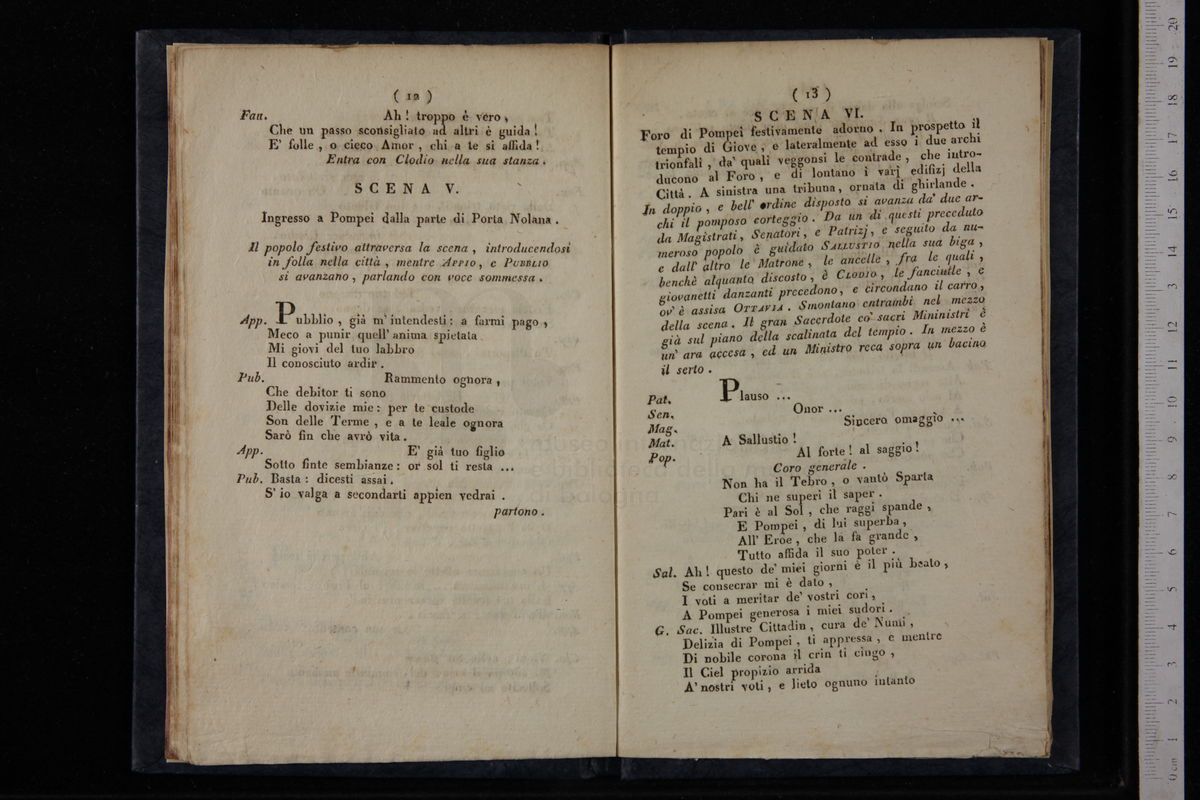 ( 12 )
Fau. Ah! troppo è vero,
Che un passo sconsigliato ad altri è guida!
E' folle, o cieco Amor, chi a te si affida!
Entra con Clodio nella sua stanza.
SCENA V.
Ingresso a Pompei dalla parte di Porta Nolana.
Il popolo festivo attraversa la scena, introducendosi
in folla nella città, mentre APPIO, e PUBBLIO
si avanzano, parlando con voce sommessa.
App. Pubblio, già m'intendesti: a farmi pago,
Meco a punir quell' anima spietata
Mi giovi del tuo labbro
Il conosciuto ardir.
Pub. Rammento ognora,
Che debitor ti sono
Delle dovizie mie: per te custode
Son delle Terme, e a te leale ognora
Sarò fin che avrò vita.
App. E' già tuo figlio
Sotto finte sembianze: or sol ti resta ...
Pub. Basta: dicesti assai.
S' io valga a secondarti appien vedrai.
partono.
( 13 )
SCENA VI.
Foro di Pompei festivamente adorno. In prospetto il
tempio di Giove, e lateralmente ad esso i due archi
trionfali, da' quali veggonsi le contrade, che intro-
ducono al Foro, e di lontano i varj edifizj della
Città. A sinistra una tribuna, ornata di ghirlande.
In doppio, e bell' ordine disposto si avanza da' due ar-
chi il pomposo corteggio. Da un di questi preceduto
da Magistrati, Senatori, e Patrizj, e seguito da nu-
meroso popolo è guidato SALLUSTIO nella sua biga,
e dall' altro le Matrone, le ancelle, fra le quali,
benchè alquanto discosto, è CLODIO, le fanciulle, e
giovanetti danzanti precedono, e circondano il carro,
ov' è assisa OTTAVIA. Smontano entrambi nel mezzo
della scena. Il gran Sacerdote co' sacri Mininistri è
già sul piano della scalinata del tempio. In mezzo è
un' ara accesa, ed un Ministro reca sopra un bacino
il serto.
Pat. Plauso ...
Sen. Onor ...
Mag. Sincero omaggio ...
Mat. A Sallustio!
Pop. Al forte! al saggio!
Coro generale.
Non ha il Tebro, o vantò Sparta
Chi ne superi il saper.
Pari è al Sol, che raggi spande,
E Pompei, di lui superba,
All' Eroe, che la fa grande,
Tutto affida il suo poter.
Sal. Ah! questo de' miei giorni è il più beato,
Se consecrar mi è dato,
I voti a meritar de' vostri cori,
A Pompei generosa i miei sudori.
G. Sac. Illustre Cittadin, cura de' Numi,
Delizia di Pompei, ti appressa, e mentre
Di nobile corona il crin ti cingo,
Il Ciel propizio arrida
A' nostri voti, e lieto ognuno intanto